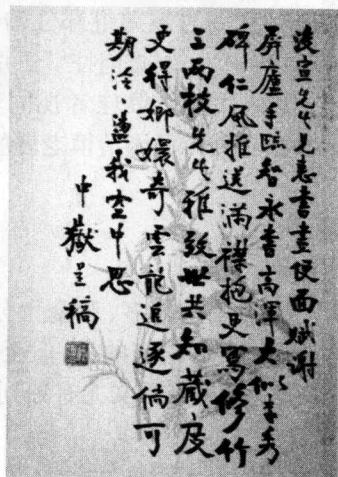 浚宣先生見惠書畫便面賦謝
屏廬手臨智永書高渾大似李秀
碑仁風推送滿襟抱更寫修竹
三兩枝先生雅致世共知藏庋
更得嫏嬛奇雲龍追逐倘可
期泠、盪我空中思
中嶽呈稿